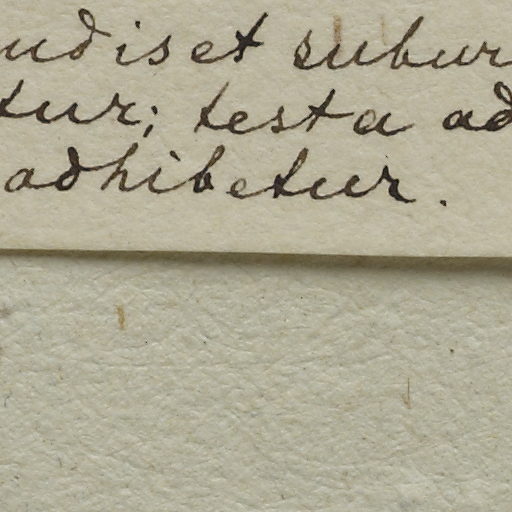 udis et subur
tur; testa ad
adhibetur.